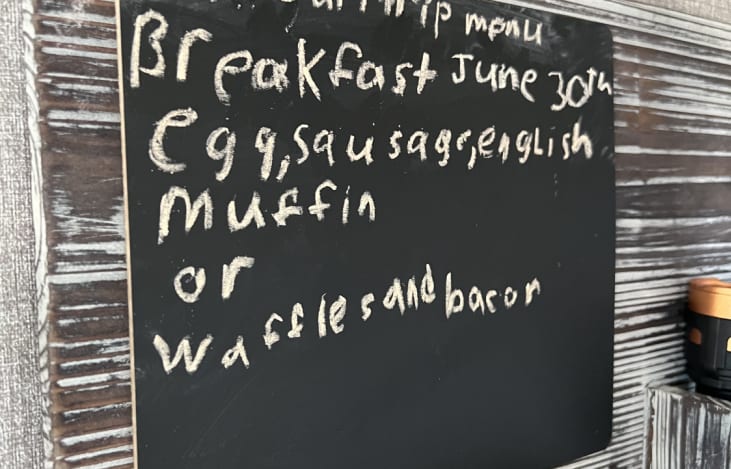 trip menu
Breakfast June 30th
egg, sausage, english
muffin
or
waffles and bacon